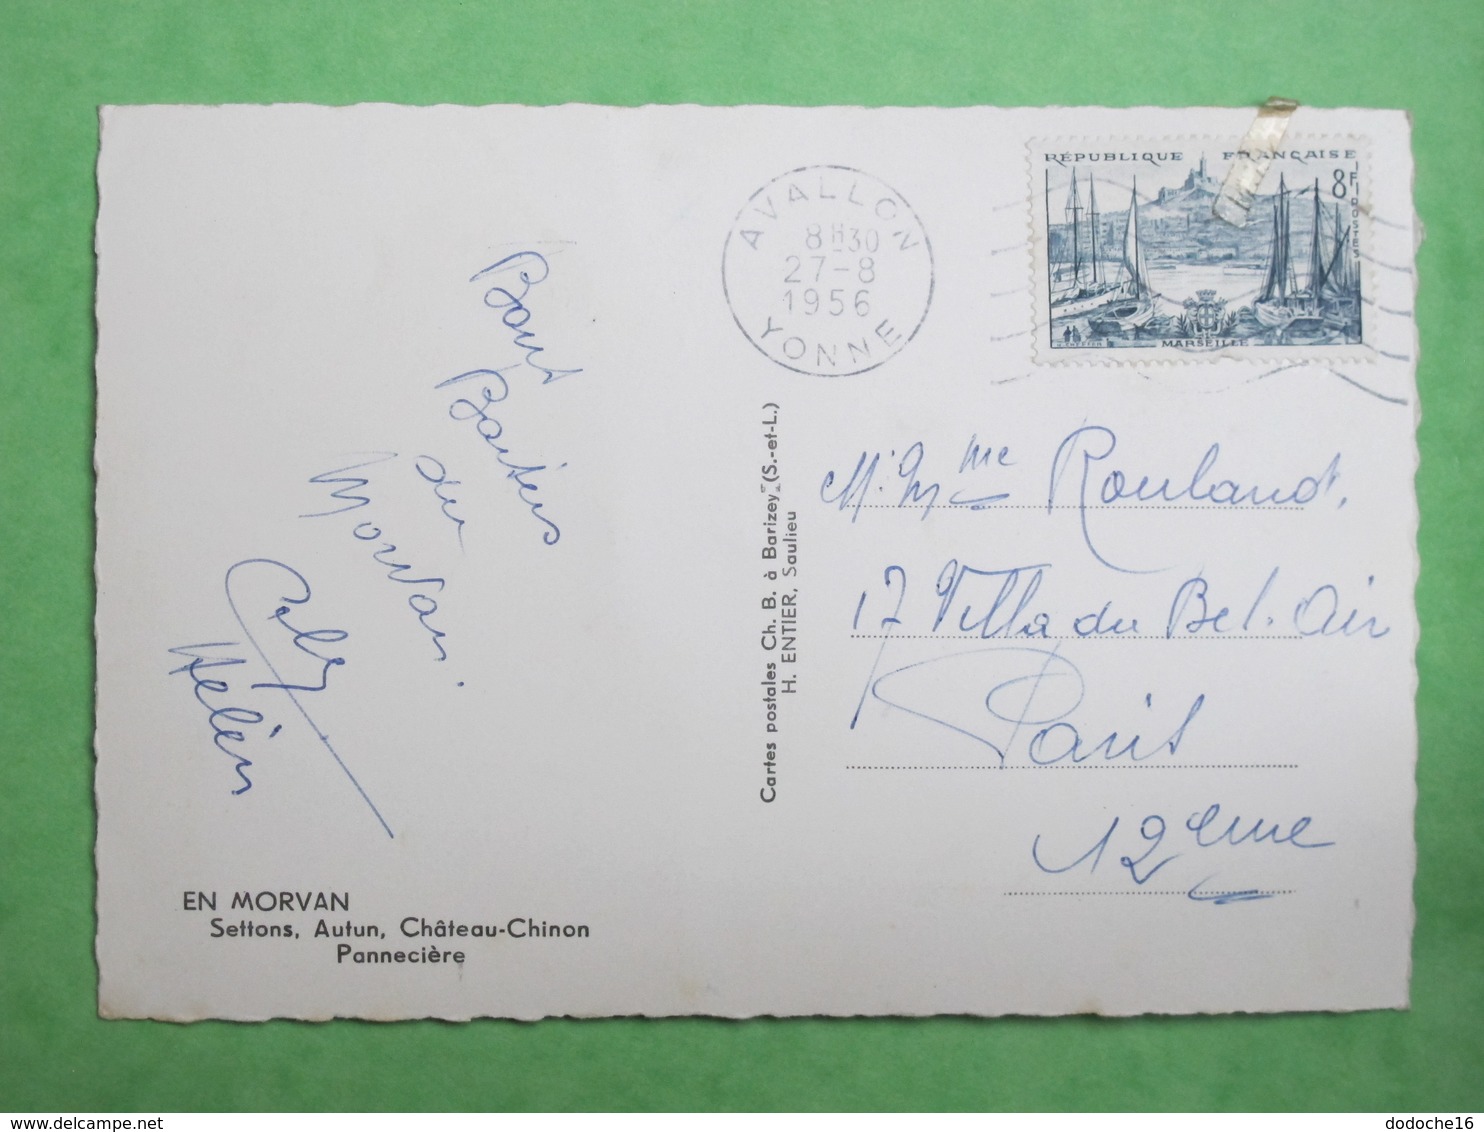 RÉPUBLIQUE FRANÇAISE
8F
POSTES
MARSEILLE
AVALLON
8H30
27-8
1956
YONNE
Bons
Baisers
du
Morvan.
Hélèn
M. Mme Rouland.
17 Villa du Bel. Air
Paris
12ème
Cartes postales Ch. B. à Barizey (S.-et-L.)
H. ENTIER, Saulieu
EN MORVAN
Settons, Autun, Château-Chinon
Pannecière
delcampe.net
dodoche16